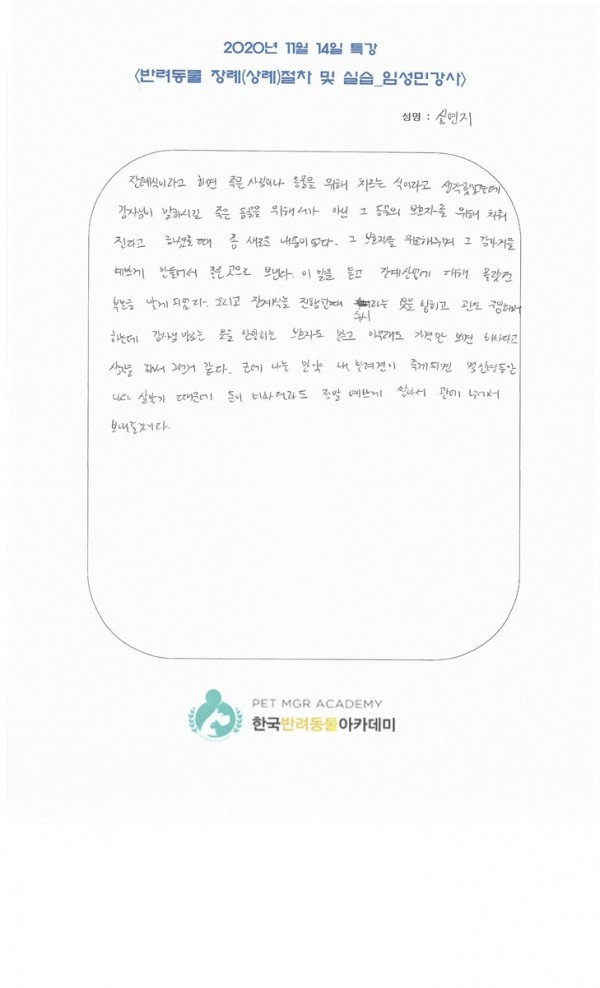 2020년 11월 14일 특강
<반려동물 장례(상례)절차 및 실습_임성민강사>
성명 : 심연지
장례식이라고 하면 죽은 사람이나 동물을 위해 치르는 식이라고 생각했었는데
강사님이 말하시길 죽은 동물을 위해서가 아닌 그 동물의 보호자를 위해 치뤄
진다고 하셨을때 좀 새로운 내용이었다. 그 보호자를 위로해주며 그
예쁘게 만들어서 좋은곳으로 보낸다. 이 말을 듣고 장례식에 대해 몰랐던
부분을 알게되었다. 그리고 장례식을 진행할때 수시라는 옷을 입히고 관도
하는데 강사님 옷을 안입히는 보호자도 있고 아무래도 가격만 보면
생각을 하는 같다. 근데 나는 만약 내 반려견이 죽게되면 몇십년동안
살았기 때문에 돈이 비싸더라도 정말 예쁘게 관에 넣어서
보내줄거다.
PET MGR ACADEMY
한국반려동물아카데미